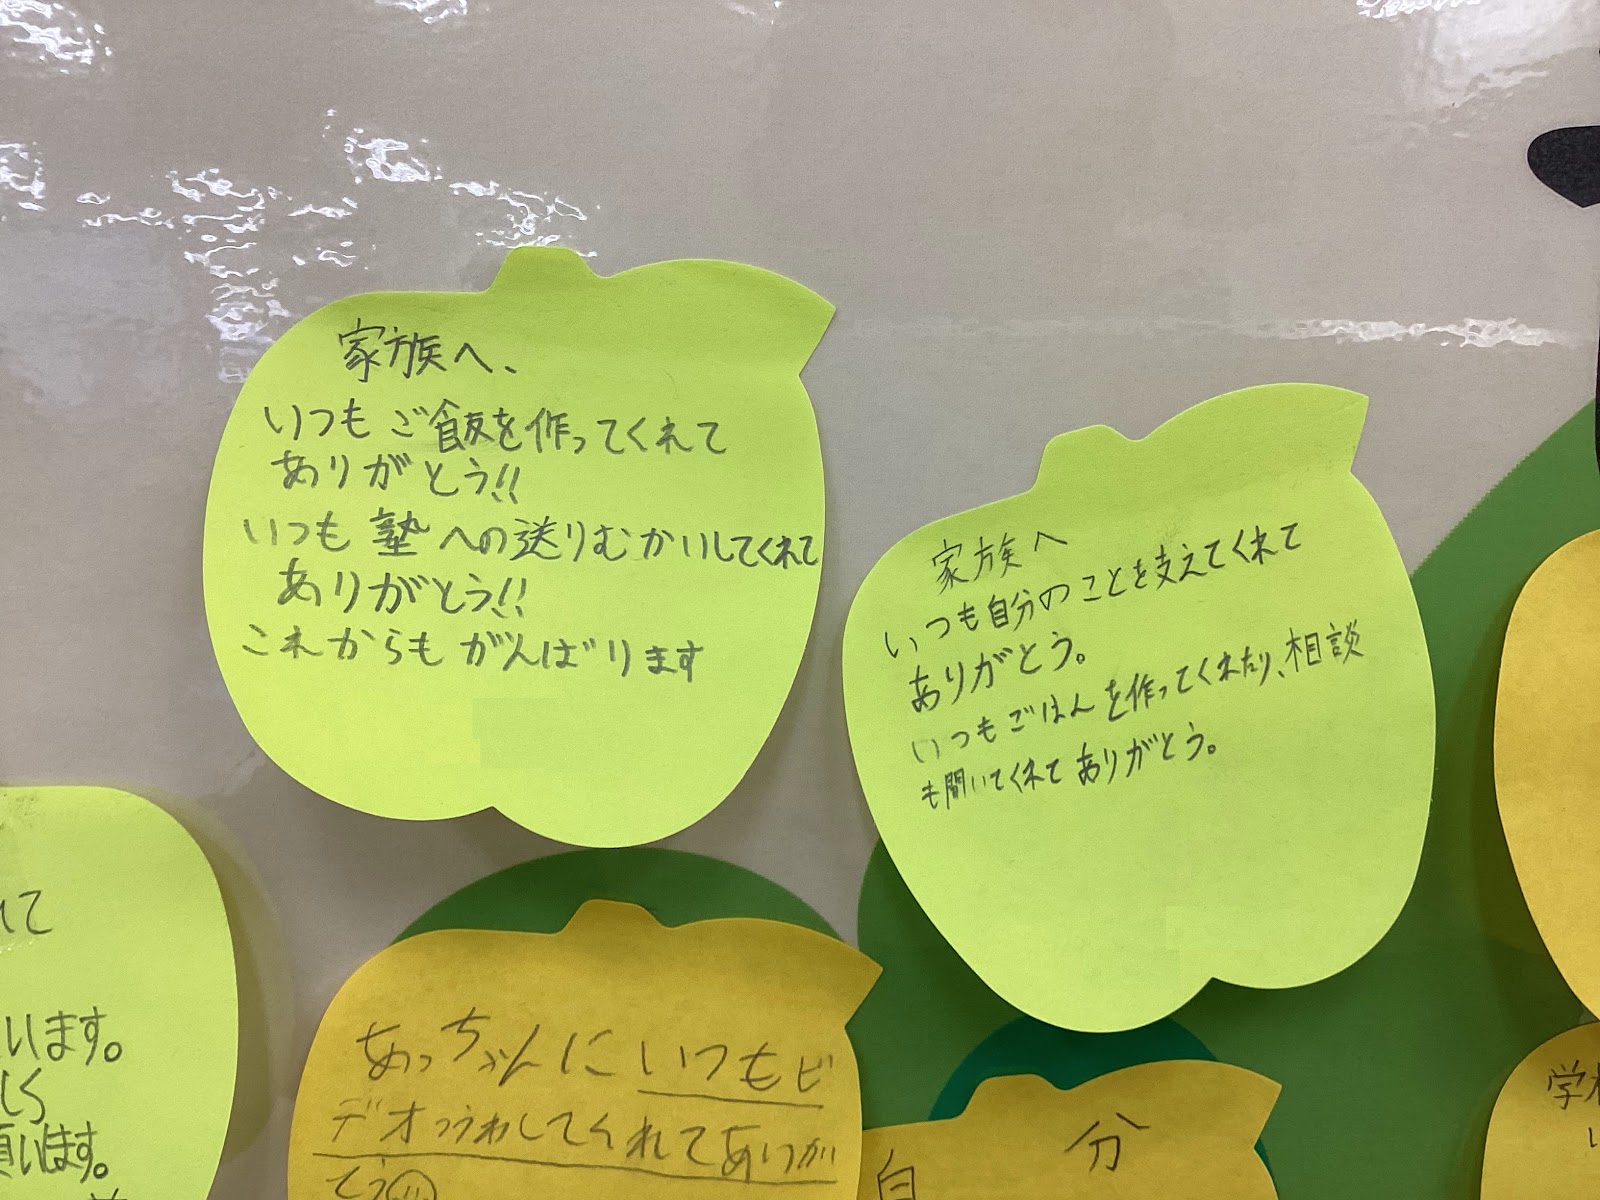 家族へ、
いつもご飯を作ってくれて
ありがとう!!
いつも塾への送りむかいしてくれて
ありがとう!!
これからもがんばります
家族へ
いつも自分のことを支えてくれて
ありがとう。
いつもごはんを作ってくれたり、相談
も聞いてくれてありがとう。
て
います。
願います。
あっちゃんにいつもビ
デオつうわしてくれてありが
とう
自分
学